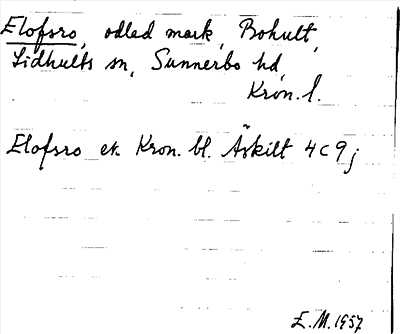 Elofsro, odlad mark, Bohult,
Lidhults sn, Sunnerbo hd,
Kron. l.
Elofsro ek. Kron. bl. Äskilt 4c9j
E. M. 1957